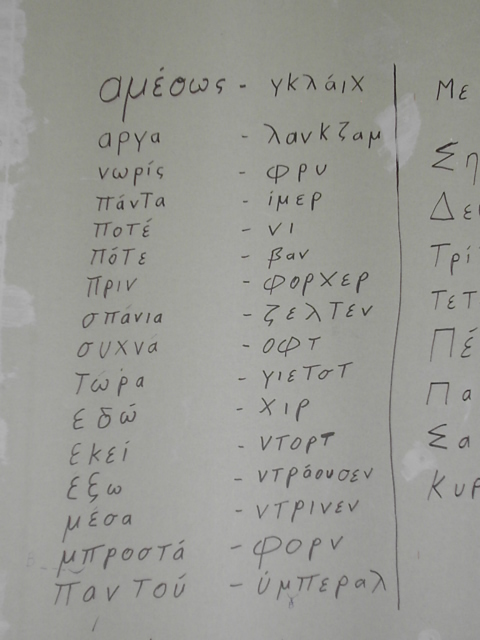 αμέσως - γκλάιχ
αργα - λανκζαμ
νωρίς - φρυ
πάντα - ίμερ
ποτέ - νι
πότε - βαν
πριν - φορχερ
σπάνια - ζελτεν
συχνά - οφτ
τώρα - γιετστ
εδώ - χιρ
εκεί - ντορτ
έξω - ντράουσεν
μέσα - ντρινεν
μπροστά - φορν
παντού - ύμπεραλ
Με
Ση
Δευ
Τρί
Τετ
Πέ
Πα
Σα
Κυρ